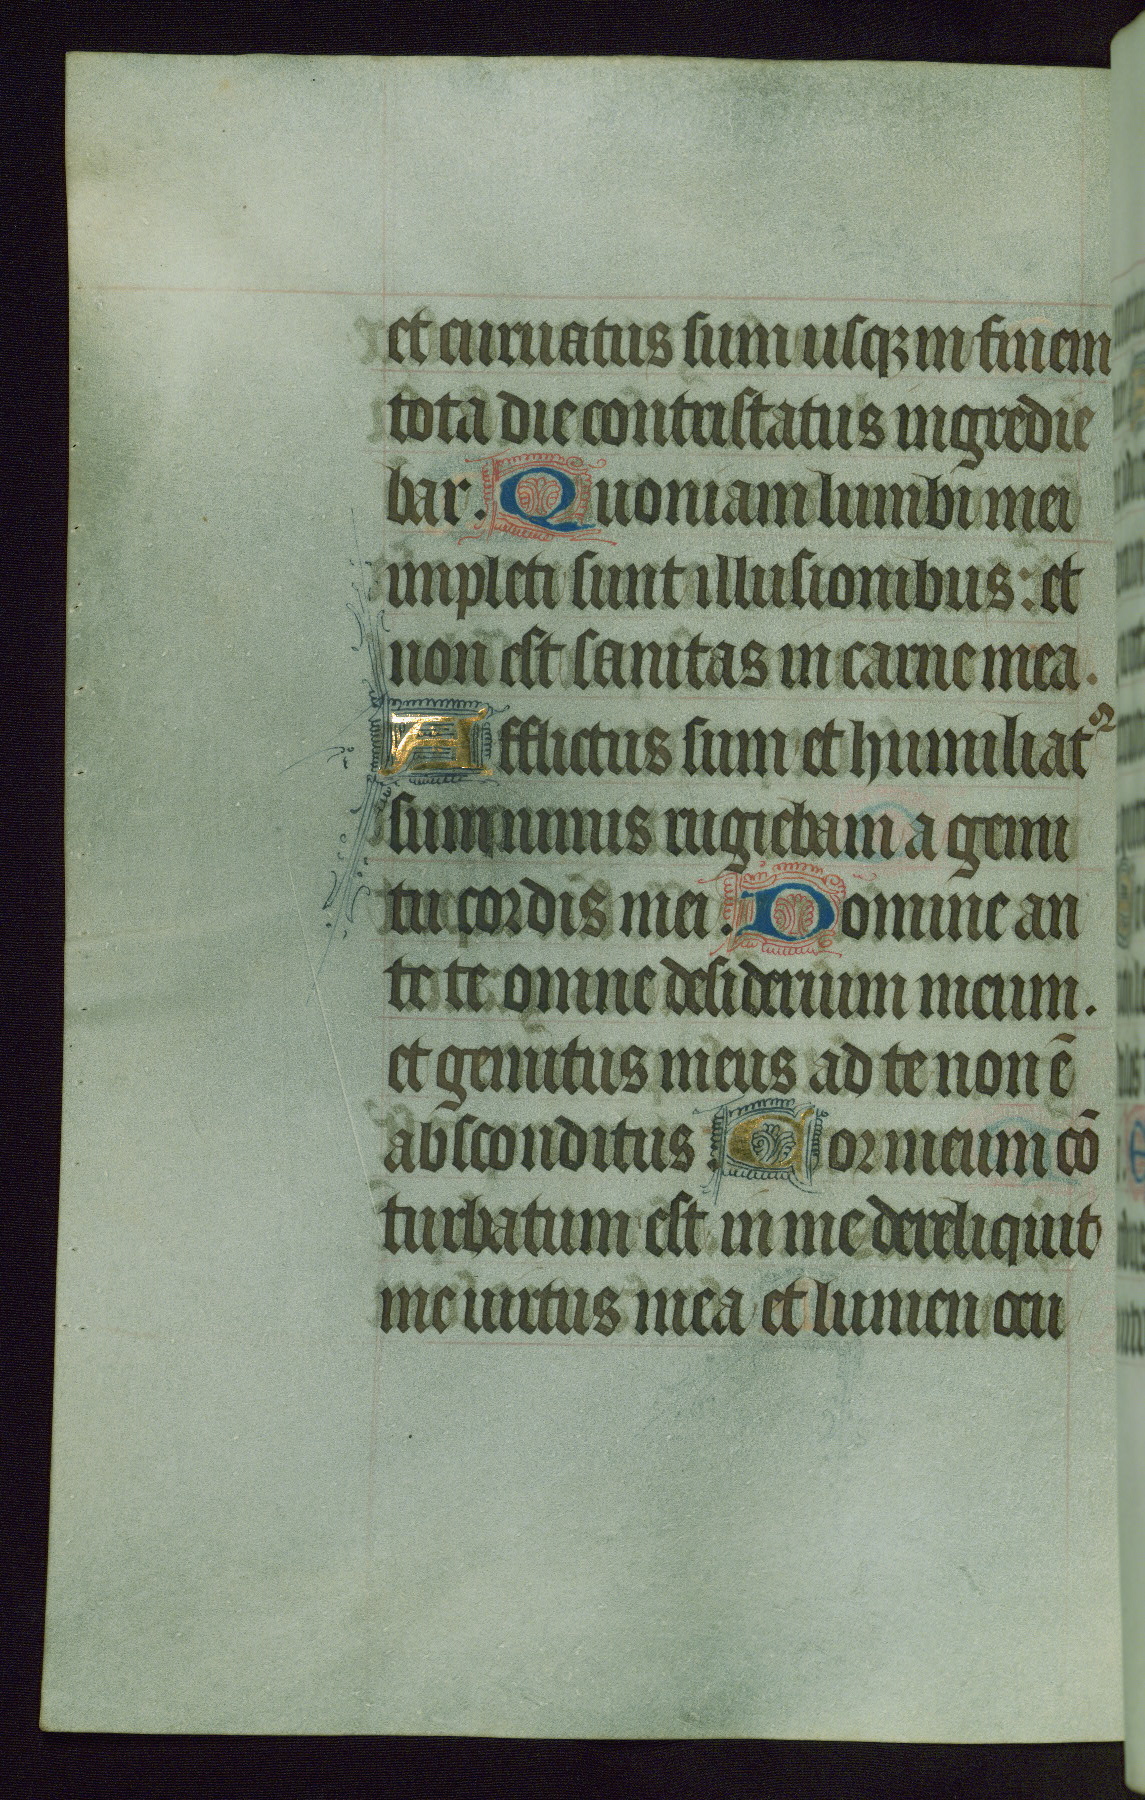 et curuatus sum usqꝫ in finem
tota die contristatus ingredie
bar. Quoniam lumbi mei
impleti sunt illusionibus: et
non est sanitas in carne mea.
Afflictus sum et humiliatꝰ
sum nimis rugiebam a gemi
tu cordis mei. Domine an
te te omne desiderium meum.
et gemitus meus ad te non ē
absconditus. Cor meum cō
turbatum est in me dereliquit
me uirtus mea et lumen ocu